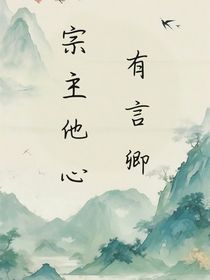 宗主他心
有言卿